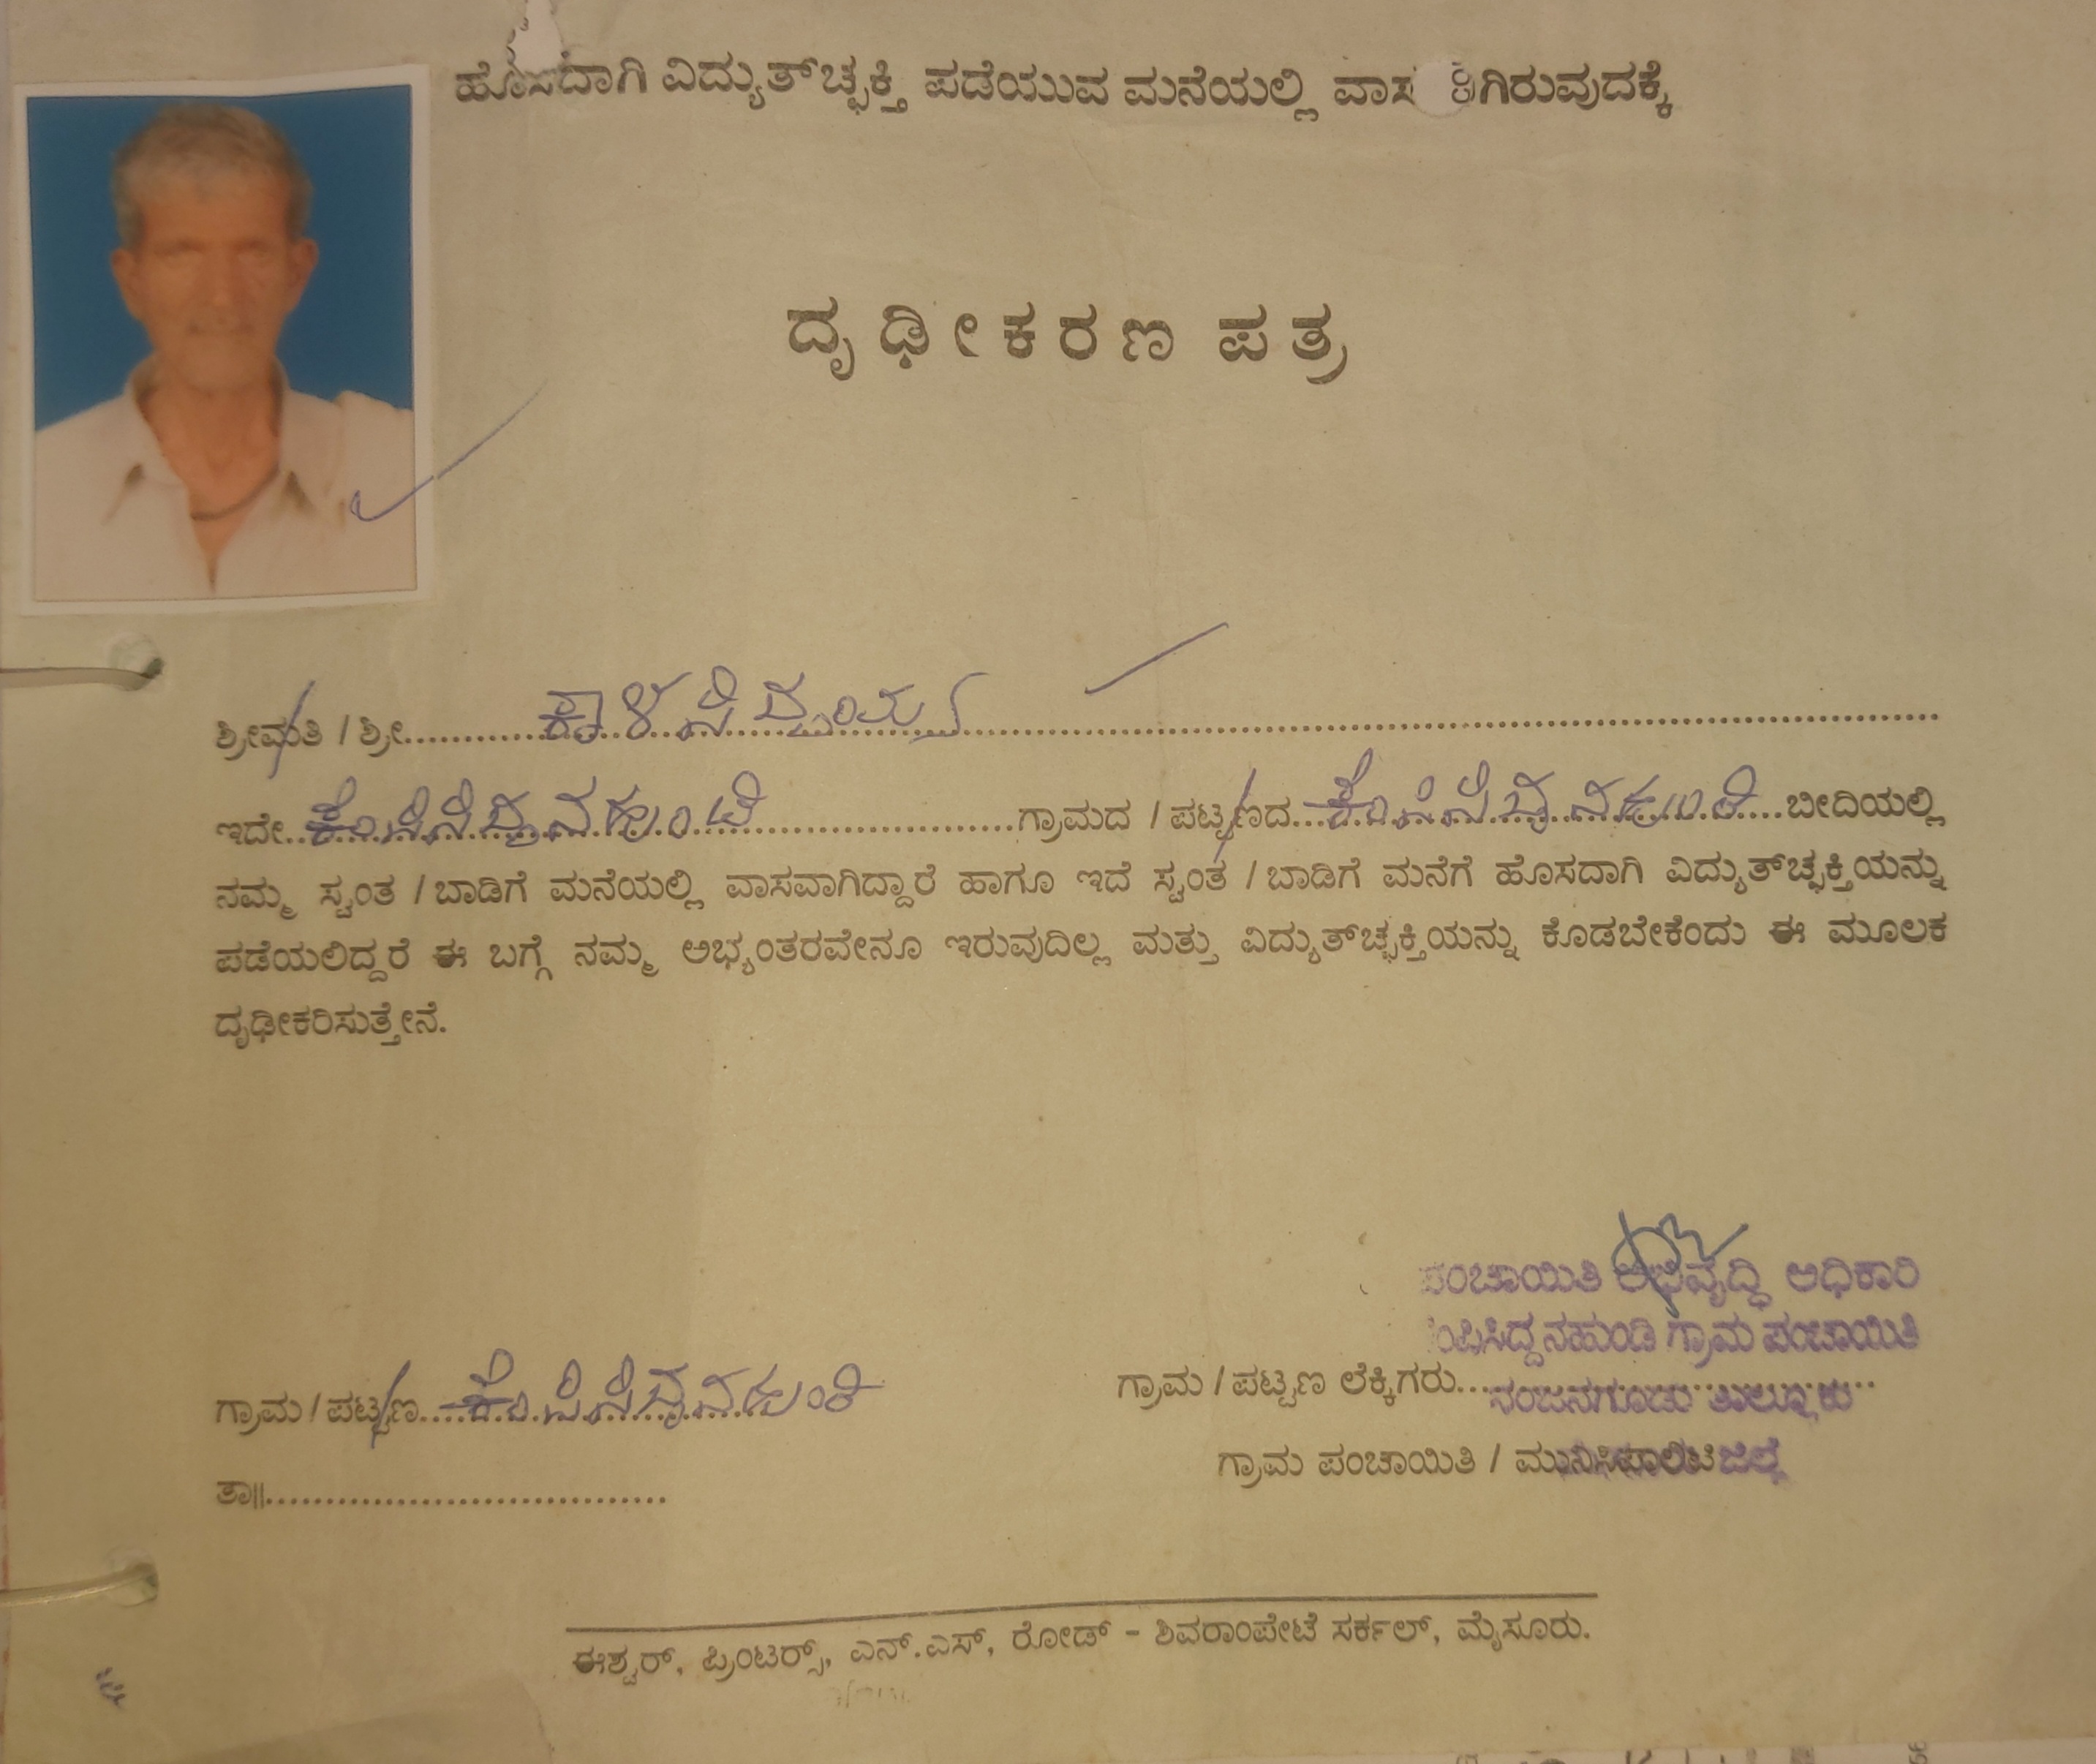 ಹೊಸದಾಗಿ ವಿದ್ಯುತ್‌ಚ್ಛಕ್ತಿ ಪಡೆಯುವ ಮನೆಯಲ್ಲಿ ಗಿರುವುದಕ್ಕೆ
ದೃಢೀಕರಣ ಪತ್ರ
ಶ್ರೀಮತಿ / ಶ್ರೀ............ಕಾಳಸಿದ್ದಯ್ಯ............
ಇದೇ.................ಗ್ರಾಮದ / ಪಟ್ಟಣದ.................ಬೀದಿಯಲ್ಲಿ
ನಮ್ಮ ಸ್ವಂತ / ಬಾಡಿಗೆ ಮನೆಯಲ್ಲಿ ವಾಸವಾಗಿದ್ದಾರೆ ಹಾಗೂ ಇದೆ ಸ್ವಂತ / ಬಾಡಿಗೆ ಮನೆಗೆ ಹೊಸದಾಗಿ ವಿದ್ಯುತ್‌ಚ್ಛಕ್ತಿಯನ್ನು
ಪಡೆಯಲಿದ್ದರೆ ಈ ಬಗ್ಗೆ ನಮ್ಮ ಅಭ್ಯಂತರವೇನೂ ಇರುವುದಿಲ್ಲ ಮತ್ತು ವಿದ್ಯುತ್‌ಚ್ಛಕ್ತಿಯನ್ನು ಕೊಡಬೇಕೆಂದು ಈ ಮೂಲಕ
ದೃಢೀಕರಿಸುತ್ತೇನೆ.
ಪಂಚಾಯಿತಿ ಅಭಿವೃದ್ಧಿ ಅಧಿಕಾರಿ
ಗ್ರಾಮ ಪಂಚಾಯಿತಿ
ಗ್ರಾಮ / ಪಟ್ಟಣ.................
ಗ್ರಾಮ / ಪಟ್ಟಣ ಲೆಕ್ಕಿಗರು.................
ನಂಜನಗೂಡು ತಾಲ್ಲೂಕು
ಗ್ರಾಮ ಪಂಚಾಯಿತಿ / ಮುನಿಸಿಪಾಲಿಟಿ ಜಿಲ್ಲೆ
ತಾ||...................................
ಈಶ್ವರ್, ಪ್ರಿಂಟರ್ಸ್, ಎನ್.ಎಸ್, ರೋಡ್ - ಶಿವರಾಂಪೇಟೆ ಸರ್ಕಲ್, ಮೈಸೂರು.